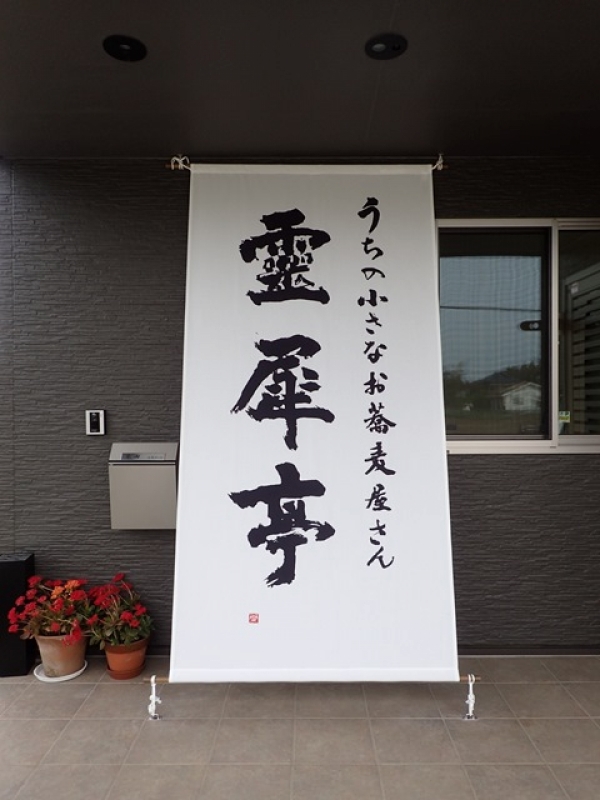 うちの小さなお蕎麦屋さん
靈犀亭